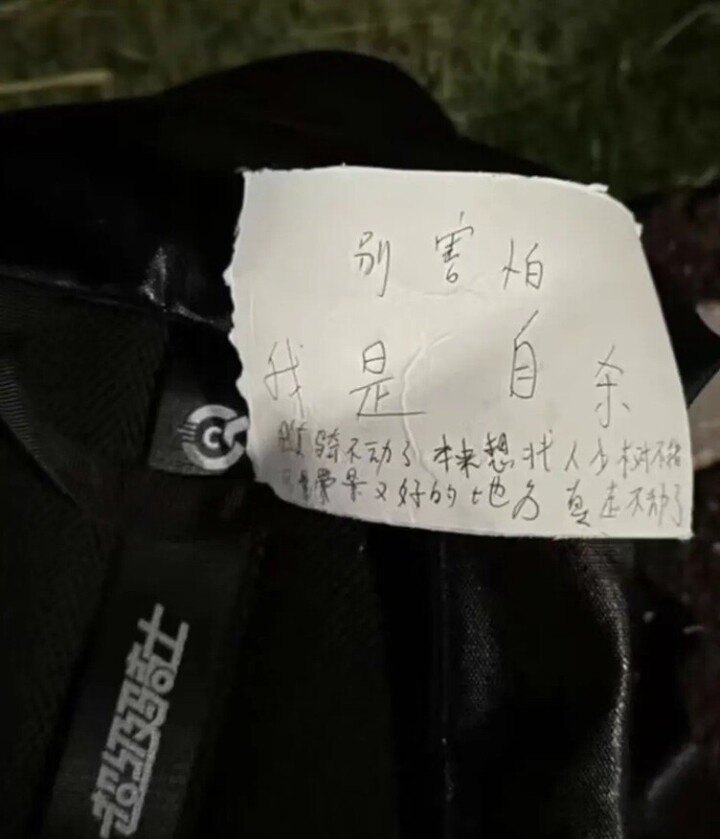 别害怕
我是自杀
骑不动了 本来想找人少树不错
风景又好的地方 真走不动了
超级骑士